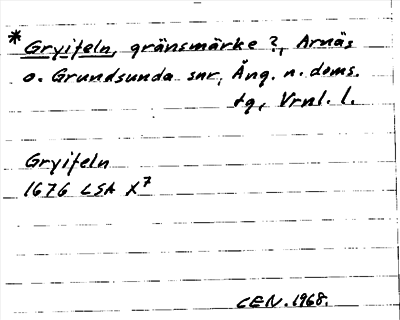 *Gryifeln, gränsmärke ?, Arnäs
o. Grundsunda snr, Ång. n. doms.
tg, Vrnl. l.
Gryifeln
1676 LSA X7
CEN. 1968.